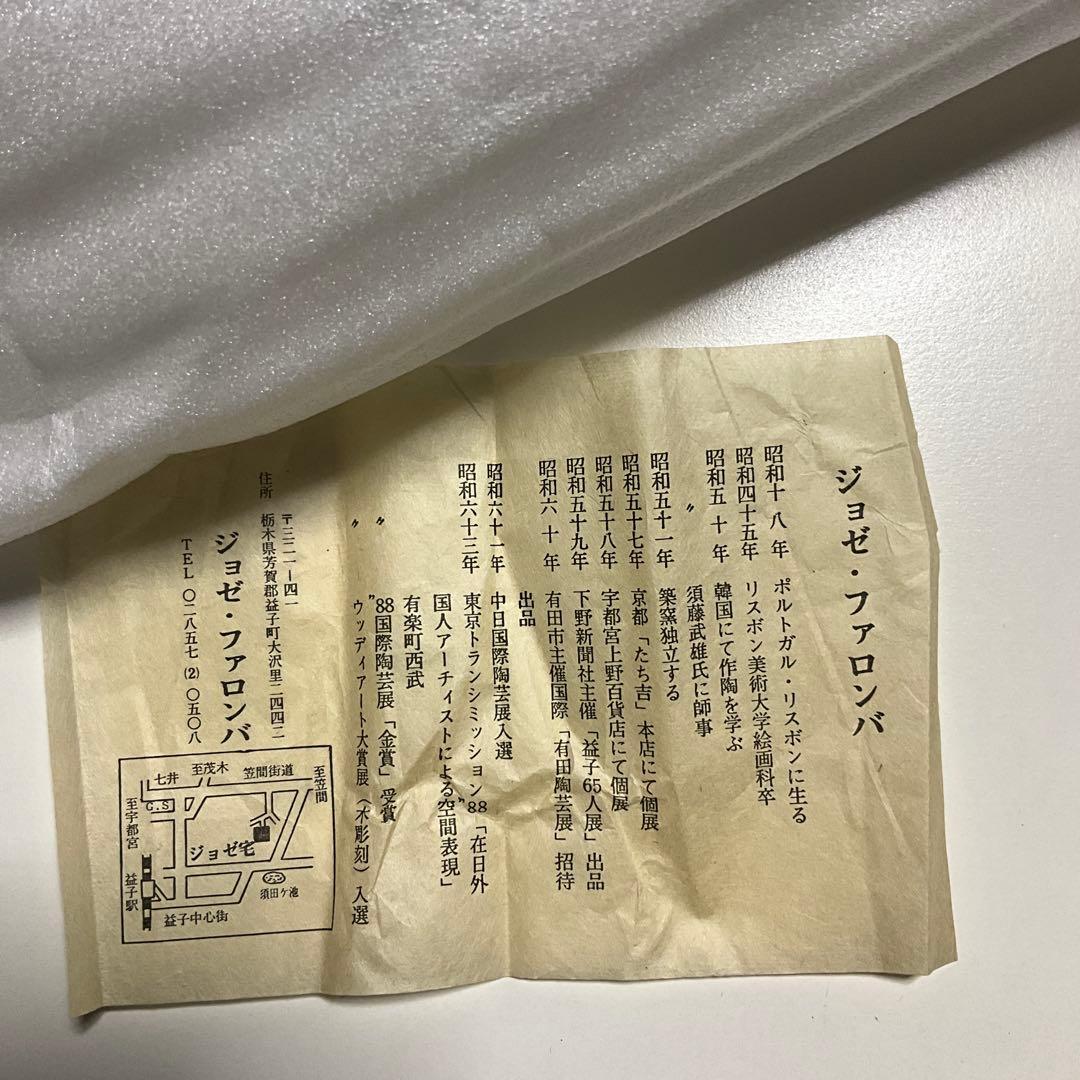 ジョゼ・ファロンバ
昭和十八年 ポルトガル・リスボンに生る
昭和四十五年 リスボン美術大学絵画科卒
昭和五十年 韓国にて作陶を学ぶ
〃 須藤武雄氏に師事
昭和五十一年 築窯独立する
昭和五十七年 京都「たち吉」本店にて個展
昭和五十八年 宇都宮上野百貨店にて個展
昭和五十九年 下野新聞社主催「益子65人展」出品
昭和六十年 有田市主催国際「有田陶芸展」招待
出品
昭和六十一年 中日国際陶芸展入選
昭和六十三年 東京トランシミッション"88「在日外
国人アーチィストによる空間表現」
有楽町西武
〃 "88国際陶芸展「金賞」受賞
〃 ウッディアート大賞展(木彫刻)入選
住所 〒三二一ー四一
栃木県芳賀郡益子町大沢里二四四二
ジョゼ・ファロンバ
TEL 〇二八五七(2)〇五〇八
至茂木
七井
笠間街道
至笠間
至宇都宮
G.S
ジョゼ宅
益子駅
須田ケ池
益子中心街